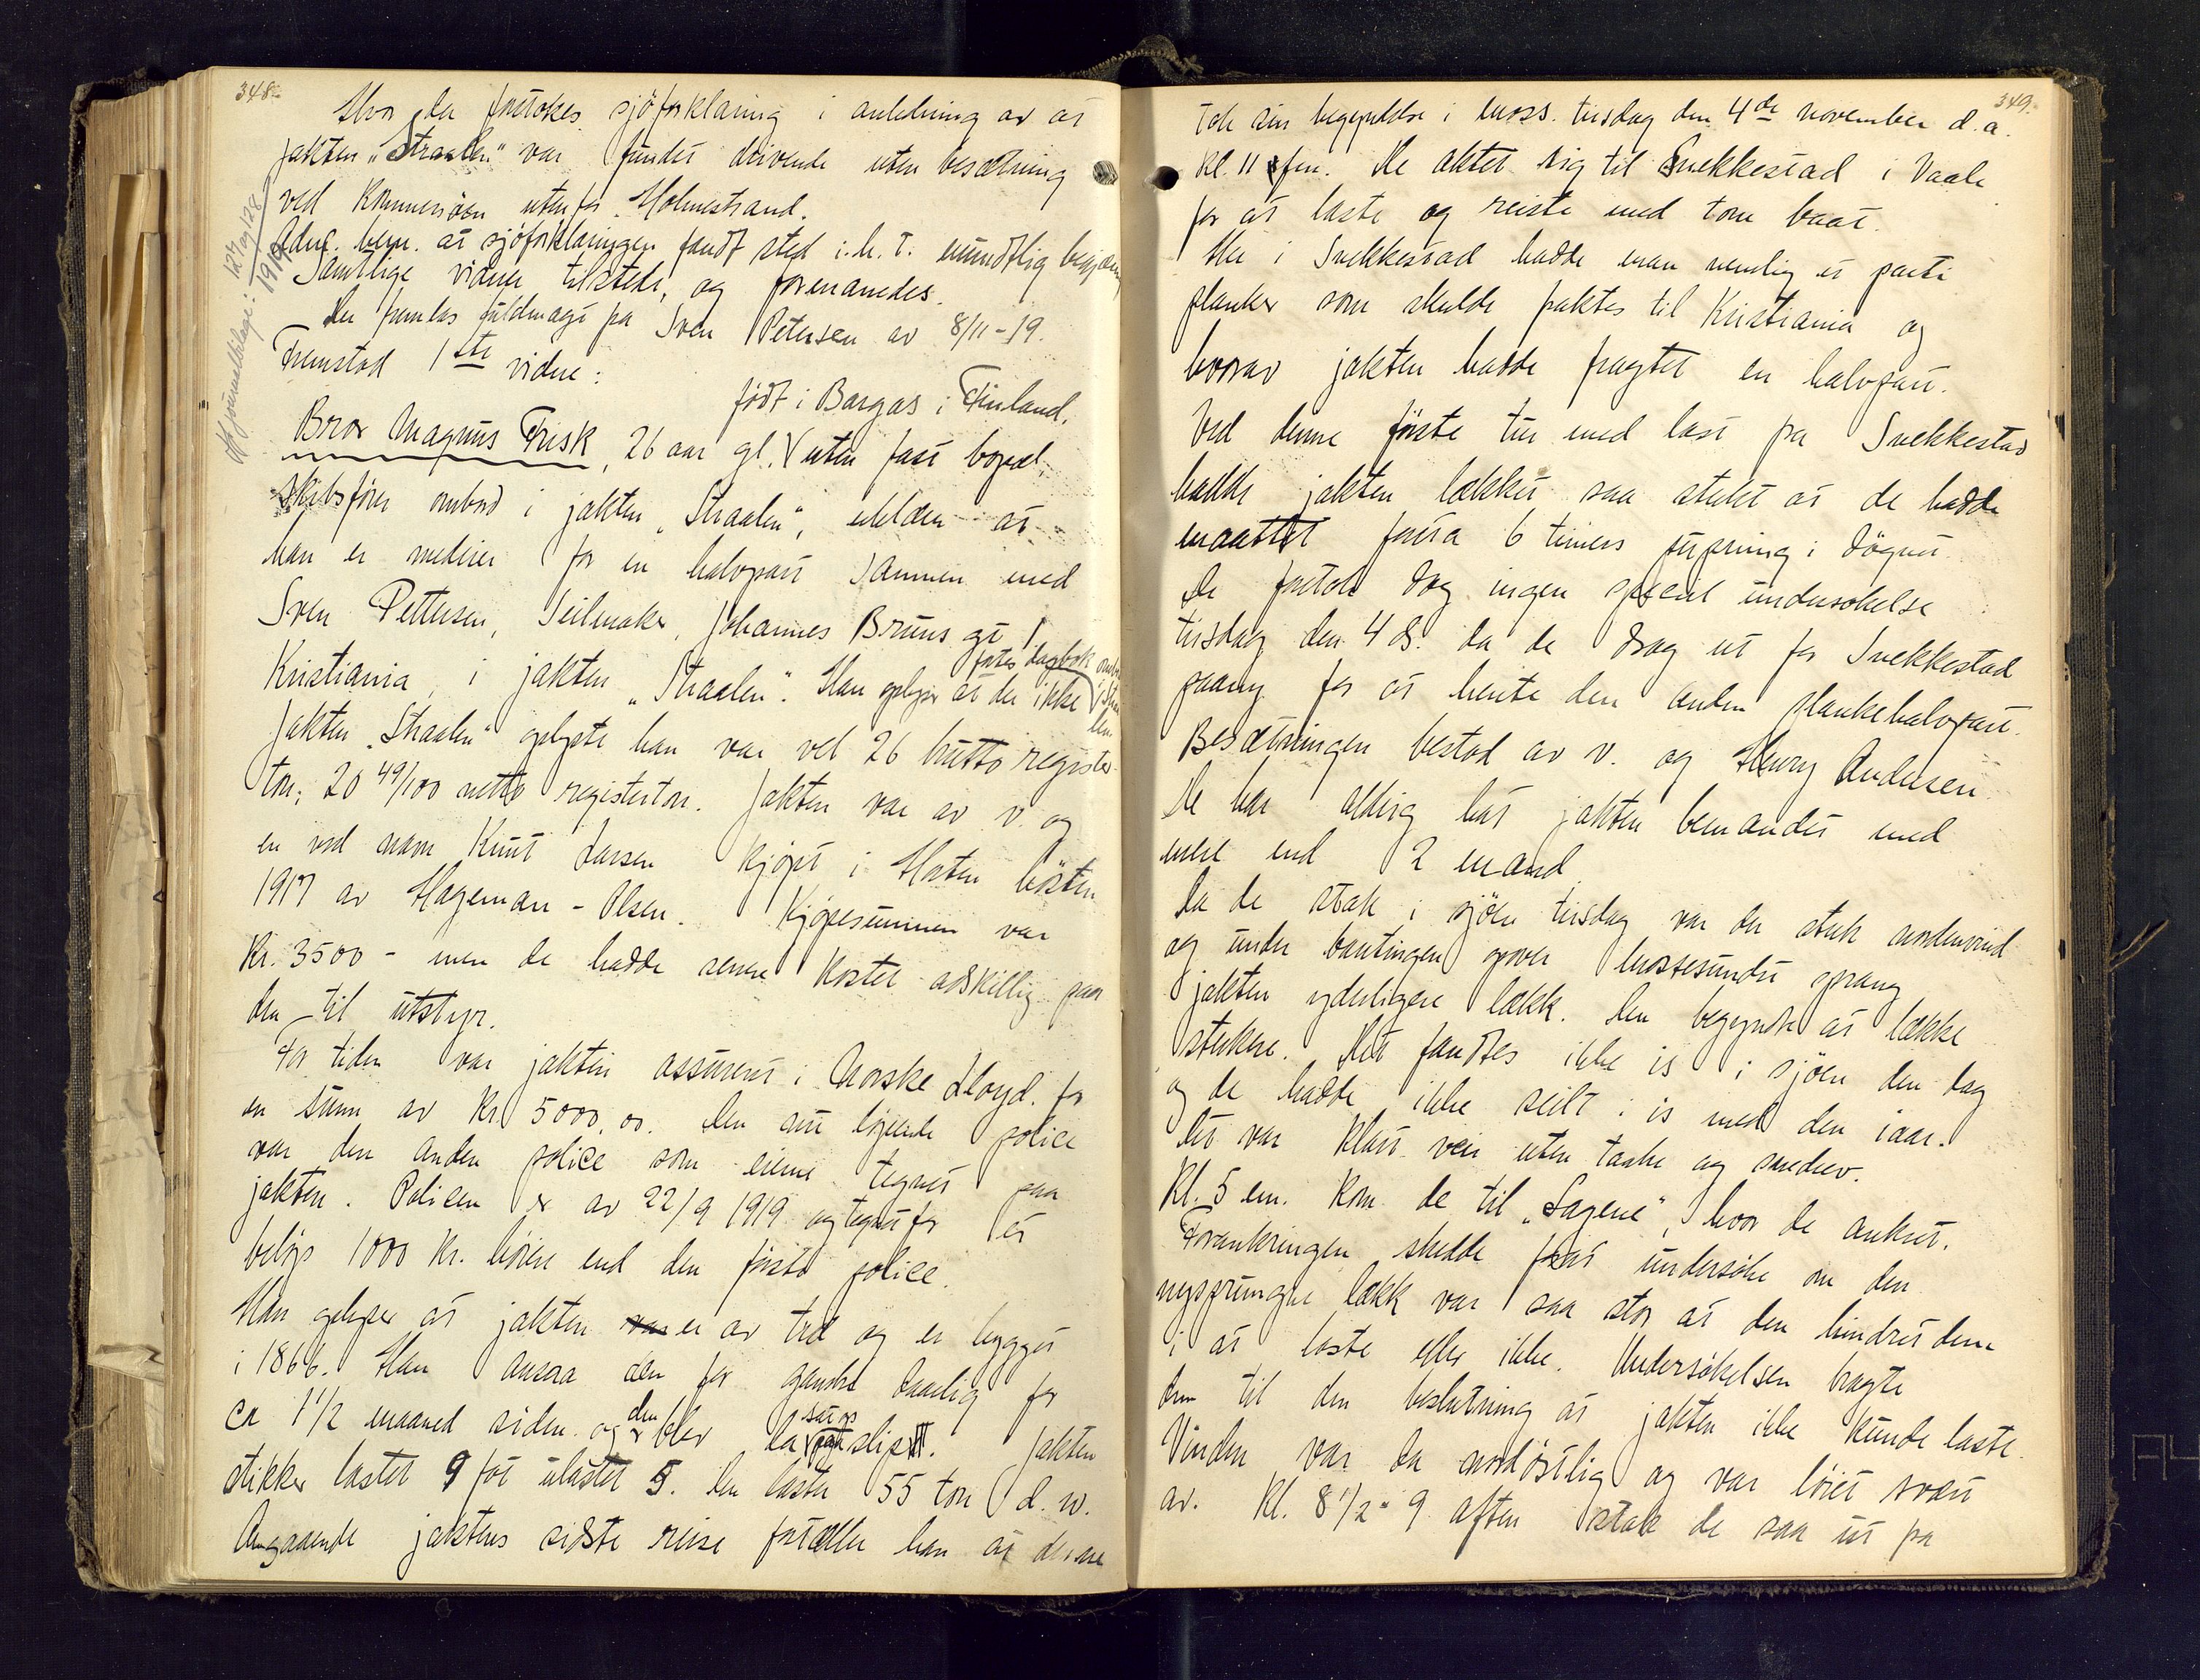 348.
Hvor da foretokes sjøforklaring i anledning av at
jakten „Straalen" var fundet drivende uten besætning
ved Kommersøen utenfor Holmestrand.
Adm. bem. at sjøforklaringen fandt sted i. h. t. mundtlig begjæring
Samtlige vidner tilstede, og formanedes.
Der fremlas fuldmagt fra Sven Petersen av 8/11-19.
Fremstod 1ste vidne:
født i Bargas i Finland,
Bror Magnus Frisk, 26 aar gl. uten fast bopæl,
skibsfører ombord i jakten „Straalen", erklærer at
han er medeier for en halvpart sammen med
Sven Pettersen, Seilmaker, Johannes Bruns gt 1
Kristiania, i jakten „Straalen". Han oplyser at der ikke føres dagbok ombord i Straalen
Jakten „Straalen" oplyste han var vel 26 brutto register
ton; 20 49/100 netto registerton. Jakten var av v. og
en ved navn Knut Larsen kjøpt i Horten høsten
1917 av Hageman-Olsen. Kjøpesummen var
Kr. 3500 - men de hadde senere kostet adskillig paa
den til utstyr.
For tiden var jakten assurert i Norske Lloyd. for
en sum av Kr. 5000,00. Den nu løpende police
var den anden police som eierne tegnet paa
jakten. Policen er av 22/9 1919 og tegnet for et
beløp 1000 Kr. høiere end den første police.
Han oplyser at jakten er av træ og er bygget
i 1866. Han ansaa den for ganske daarlig for
ca 1 1/2 maaned siden og den blev da sat op paa slip.
Jakten
stikker lastet 9 fot ulastet 5. Den laster 55 ton d. w.
Angaaende jaktens sidste reise fortæller han at denne
Hjournalbilage: 127 og 128/1919
349.
tok sin begyndelse i Moss. tirsdag den 4de november d. a.
Kl. 11 fm. De aktet sig til Snekkestad i Vaale
for at laste og reiste med tom baat.
Her i Snekkestad hadde man nemlig et parti
planker som skulde fraktes til Kristiania og
hvorav jakten hadde fragtet en halvpart.
Ved denne første tur med last fra Snekkestad
hadde jakten lækket saa sterkt at de hadde
maattet foreta 6 timers pumpning i døgnet.
De foretok dog ingen speciel undersøkelse
tirsdag den 4 ds. da de drog ut for Snekkestad
paany for at hente den anden plankehalvpart.
Besætningen bestod av v. og Henry Andersen
De har aldrig hat jakten bemandet med
mere end 2 mand.
Da de stak i sjøen tirsdag var der sterk nordenvind
og under bautingen over Mossesundet sprang
jakten yderligere lækk. Den begyndte at lække
sterkere. Det fandtes ikke is i sjøen den dag
og de hadde ikke seilt i is med den iaar.
Det var klart veir uten taake og snedrev.
Kl. 5 em. kom de til „Sagene", hvor de ankret.
Forankringen skedde for at undersøke om den
nysprungne lækk var saa stor at den hindret dem
i at laste eller ikke. Undersøkelsen bragte
dem til den beslutning at jakten ikke kunde laste.
Vinden var da nordøstlig og var løiet svært
av. Kl. 8 1/2 - 9 aften stak de saa ut fra